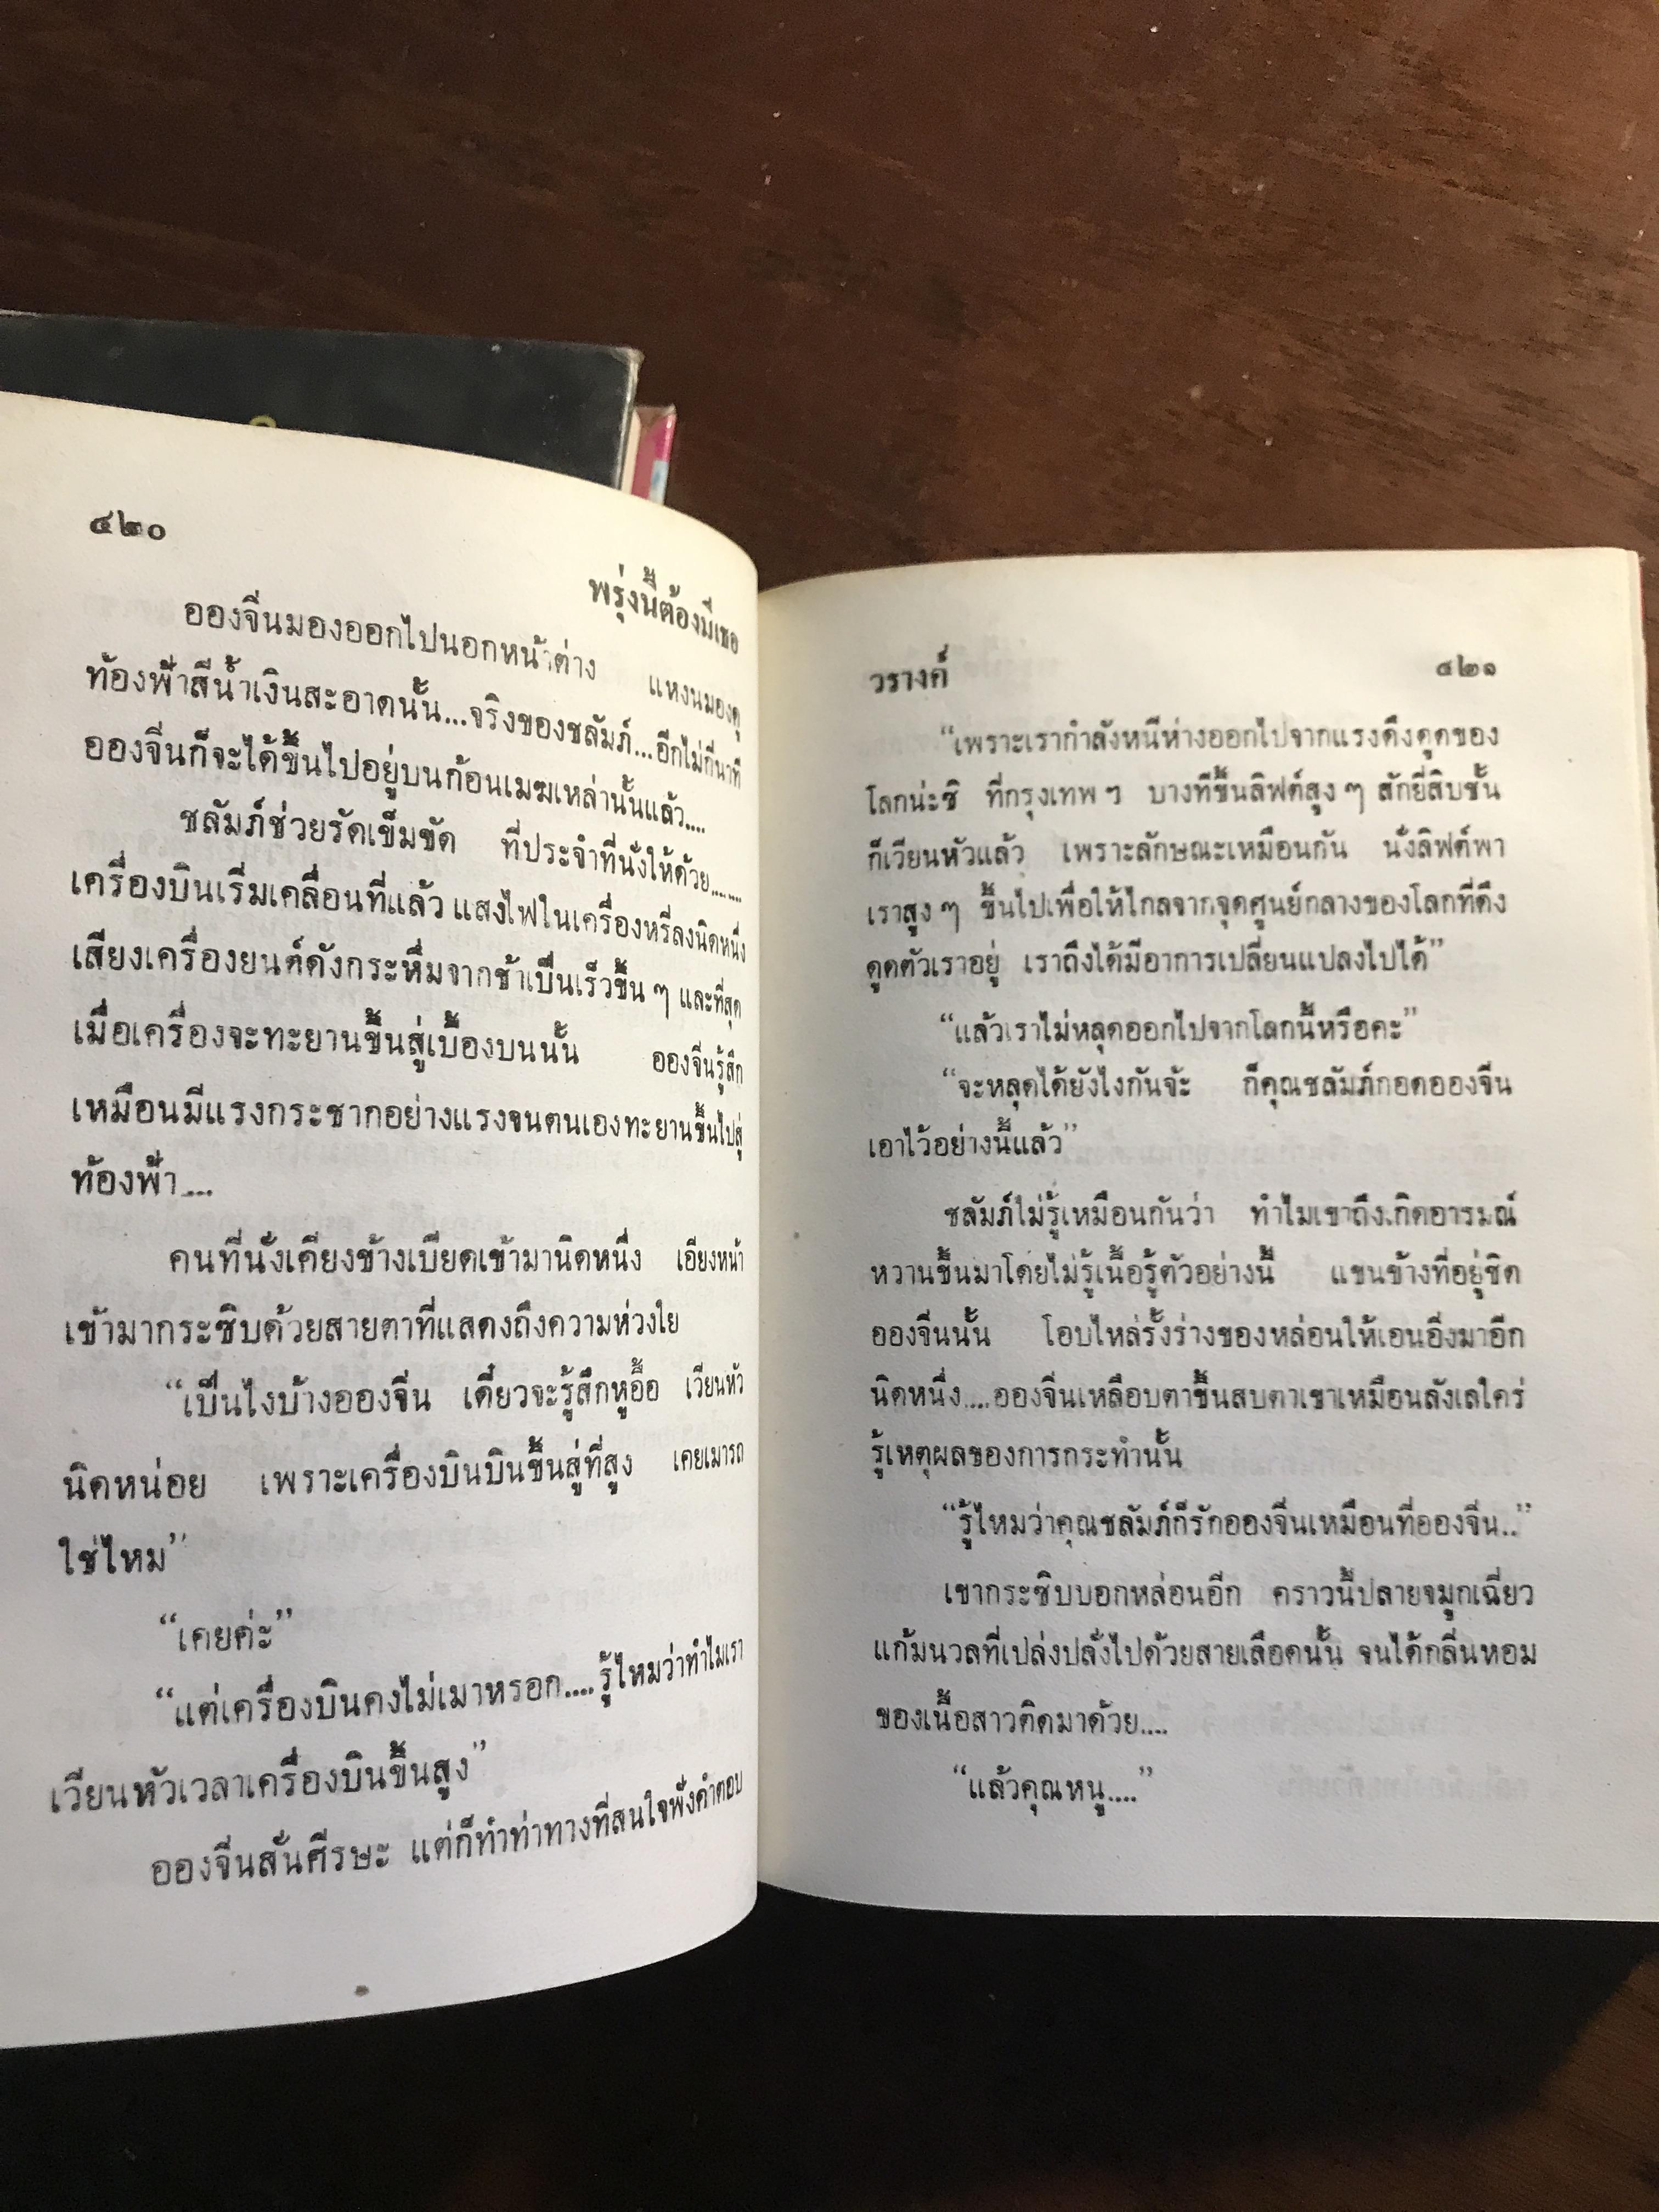 ๔๒๐
พรุ่งนี้ต้องมีเธอ
อองจีนมองออกไปนอกหน้าต่าง แหงนมองดู
ท้องฟ้าสีน้ำเงินสะอาดนั้น...จริงของชลัมภ์...อีกไม่กี่นาที
อองจีนก็จะได้ขึ้นไปอยู่บนก้อนเมฆเหล่านั้นแล้ว....
ชลัมภ์ช่วยรัดเข็มขัด ที่ประจำที่นั่งให้ด้วย.......
เครื่องบินเริ่มเคลื่อนที่แล้ว แสงไฟในเครื่องหรี่ลงนิดหนึ่ง
เสียงเครื่องยนต์ดังกระหึ่มจากช้าเป็นเร็วขึ้น ๆ และที่สุด
เมื่อเครื่องจะทะยานขึ้นสู่เบื้องบนนั้น อองจีนรู้สึก
เหมือนมีแรงกระชากอย่างแรงจนตนเองทะยานขึ้นไปสู่
ท้องฟ้า....
คนที่นั่งเคียงข้างเบียดเข้ามานิดหนึ่ง เอียงหน้า
เข้ามากระซิบด้วยสายตาที่แสดงถึงความห่วงใย
“เป็นไงบ้างอองจีน เดี๋ยวจะรู้สึกหูอื้อ เวียนหัว
นิดหน่อย เพราะเครื่องบินบินขึ้นสู่ที่สูง เคยเมารถ
ใช่ไหม”
“เคยค่ะ”
“แต่เครื่องบินคงไม่เมาหรอก....รู้ไหมว่าทำไมเรา
เวียนหัวเวลาเครื่องบินขึ้นสูง”
อองจีนสั่นศีรษะ แต่ก็ทำท่าทางที่สนใจฟังคำตอบ
วรางค์
๔๒๑
“เพราะเรากำลังหนีห่างออกไปจากแรงดึงดูดของ
โลกน่ะซิ ที่กรุงเทพฯ บางทีขึ้นลิฟต์สูง ๆ สักยี่สิบชั้น
ก็เวียนหัวแล้ว เพราะลักษณะเหมือนกัน นั่งลิฟต์พา
เราสูง ๆ ขึ้นไปเพื่อให้ไกลจากจุดศูนย์กลางของโลกที่ดึง
ดูดตัวเราอยู่ เราถึงได้มีอาการเปลี่ยนแปลงไปได้”
“แล้วเราไม่หลุดออกไปจากโลกนี้หรือคะ”
“จะหลุดได้ยังไงกันจ้ะ ก็คุณชลัมภ์กอดอองจีน
เอาไว้อย่างนี้แล้ว”
ชลัมภ์ไม่รู้เหมือนกันว่า ทำไมเขาถึงเกิดอารมณ์
หวานขึ้นมาโดยไม่รู้เนื้อรู้ตัวอย่างนี้ แขนข้างที่อยู่ชิด
อองจีนนั้น โอบไหล่รั้งร่างของหล่อนให้เอนอิงมาอีก
นิดหนึ่ง....อองจีนเหลือบตาขึ้นสบตาเขาเหมือนลังเลใคร่
รู้เหตุผลของการกระทำนั้น
“รู้ไหมว่าคุณชลัมภ์ก็รักอองจีนเหมือนที่อองจีน..”
เขากระซิบบอกหล่อนอีก คราวนี้ปลายจมูกเฉียว
แก้มนวลที่เปล่งปลั่งไปด้วยสายเลือดนั้น จนได้กลิ่นหอม
ของเนื้อสาวติดมาด้วย....
“แล้วคุณหนู....”